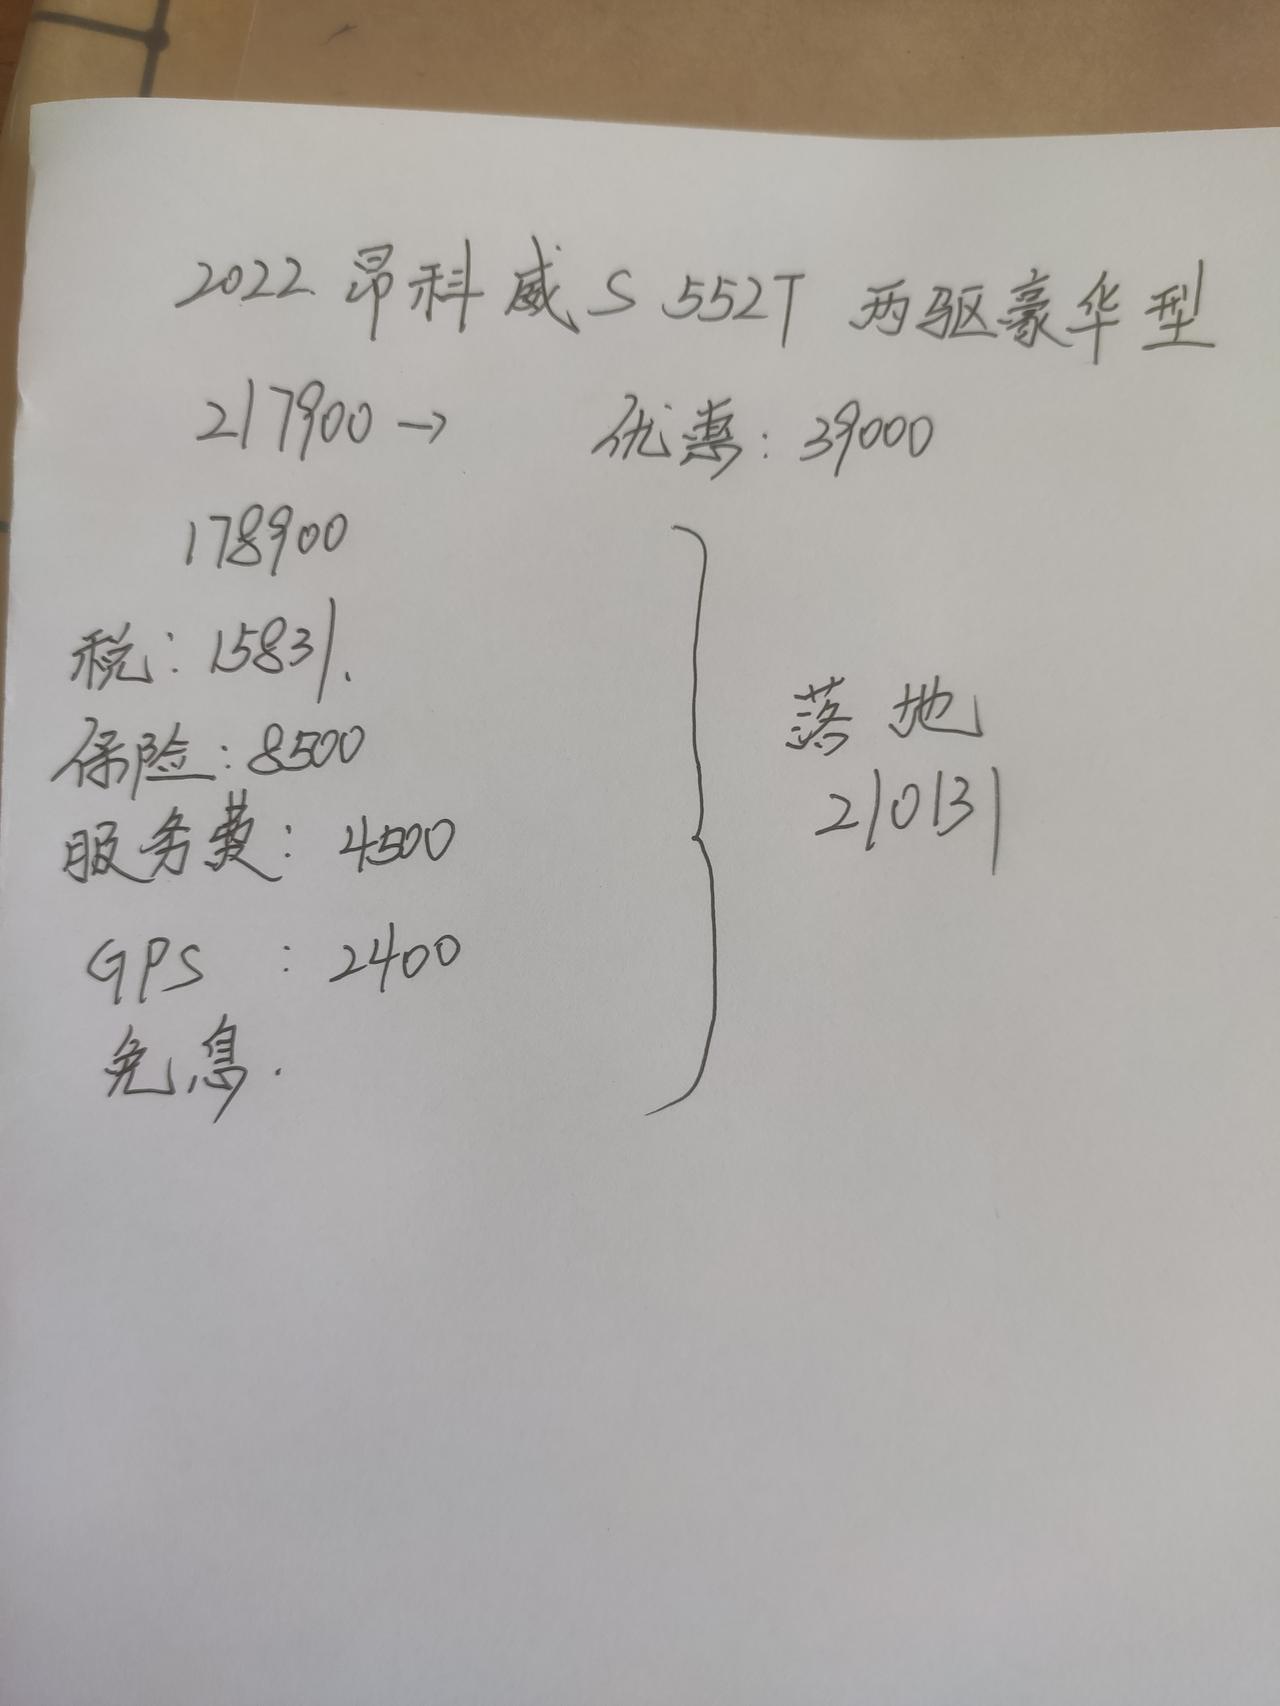 2022 昂科威 S 552T 两驱豪华型
217900 → 优惠: 39000
178900
税: 15831.
保险: 8500
服务费: 4500
GPS : 2400
免息.
落地
210131